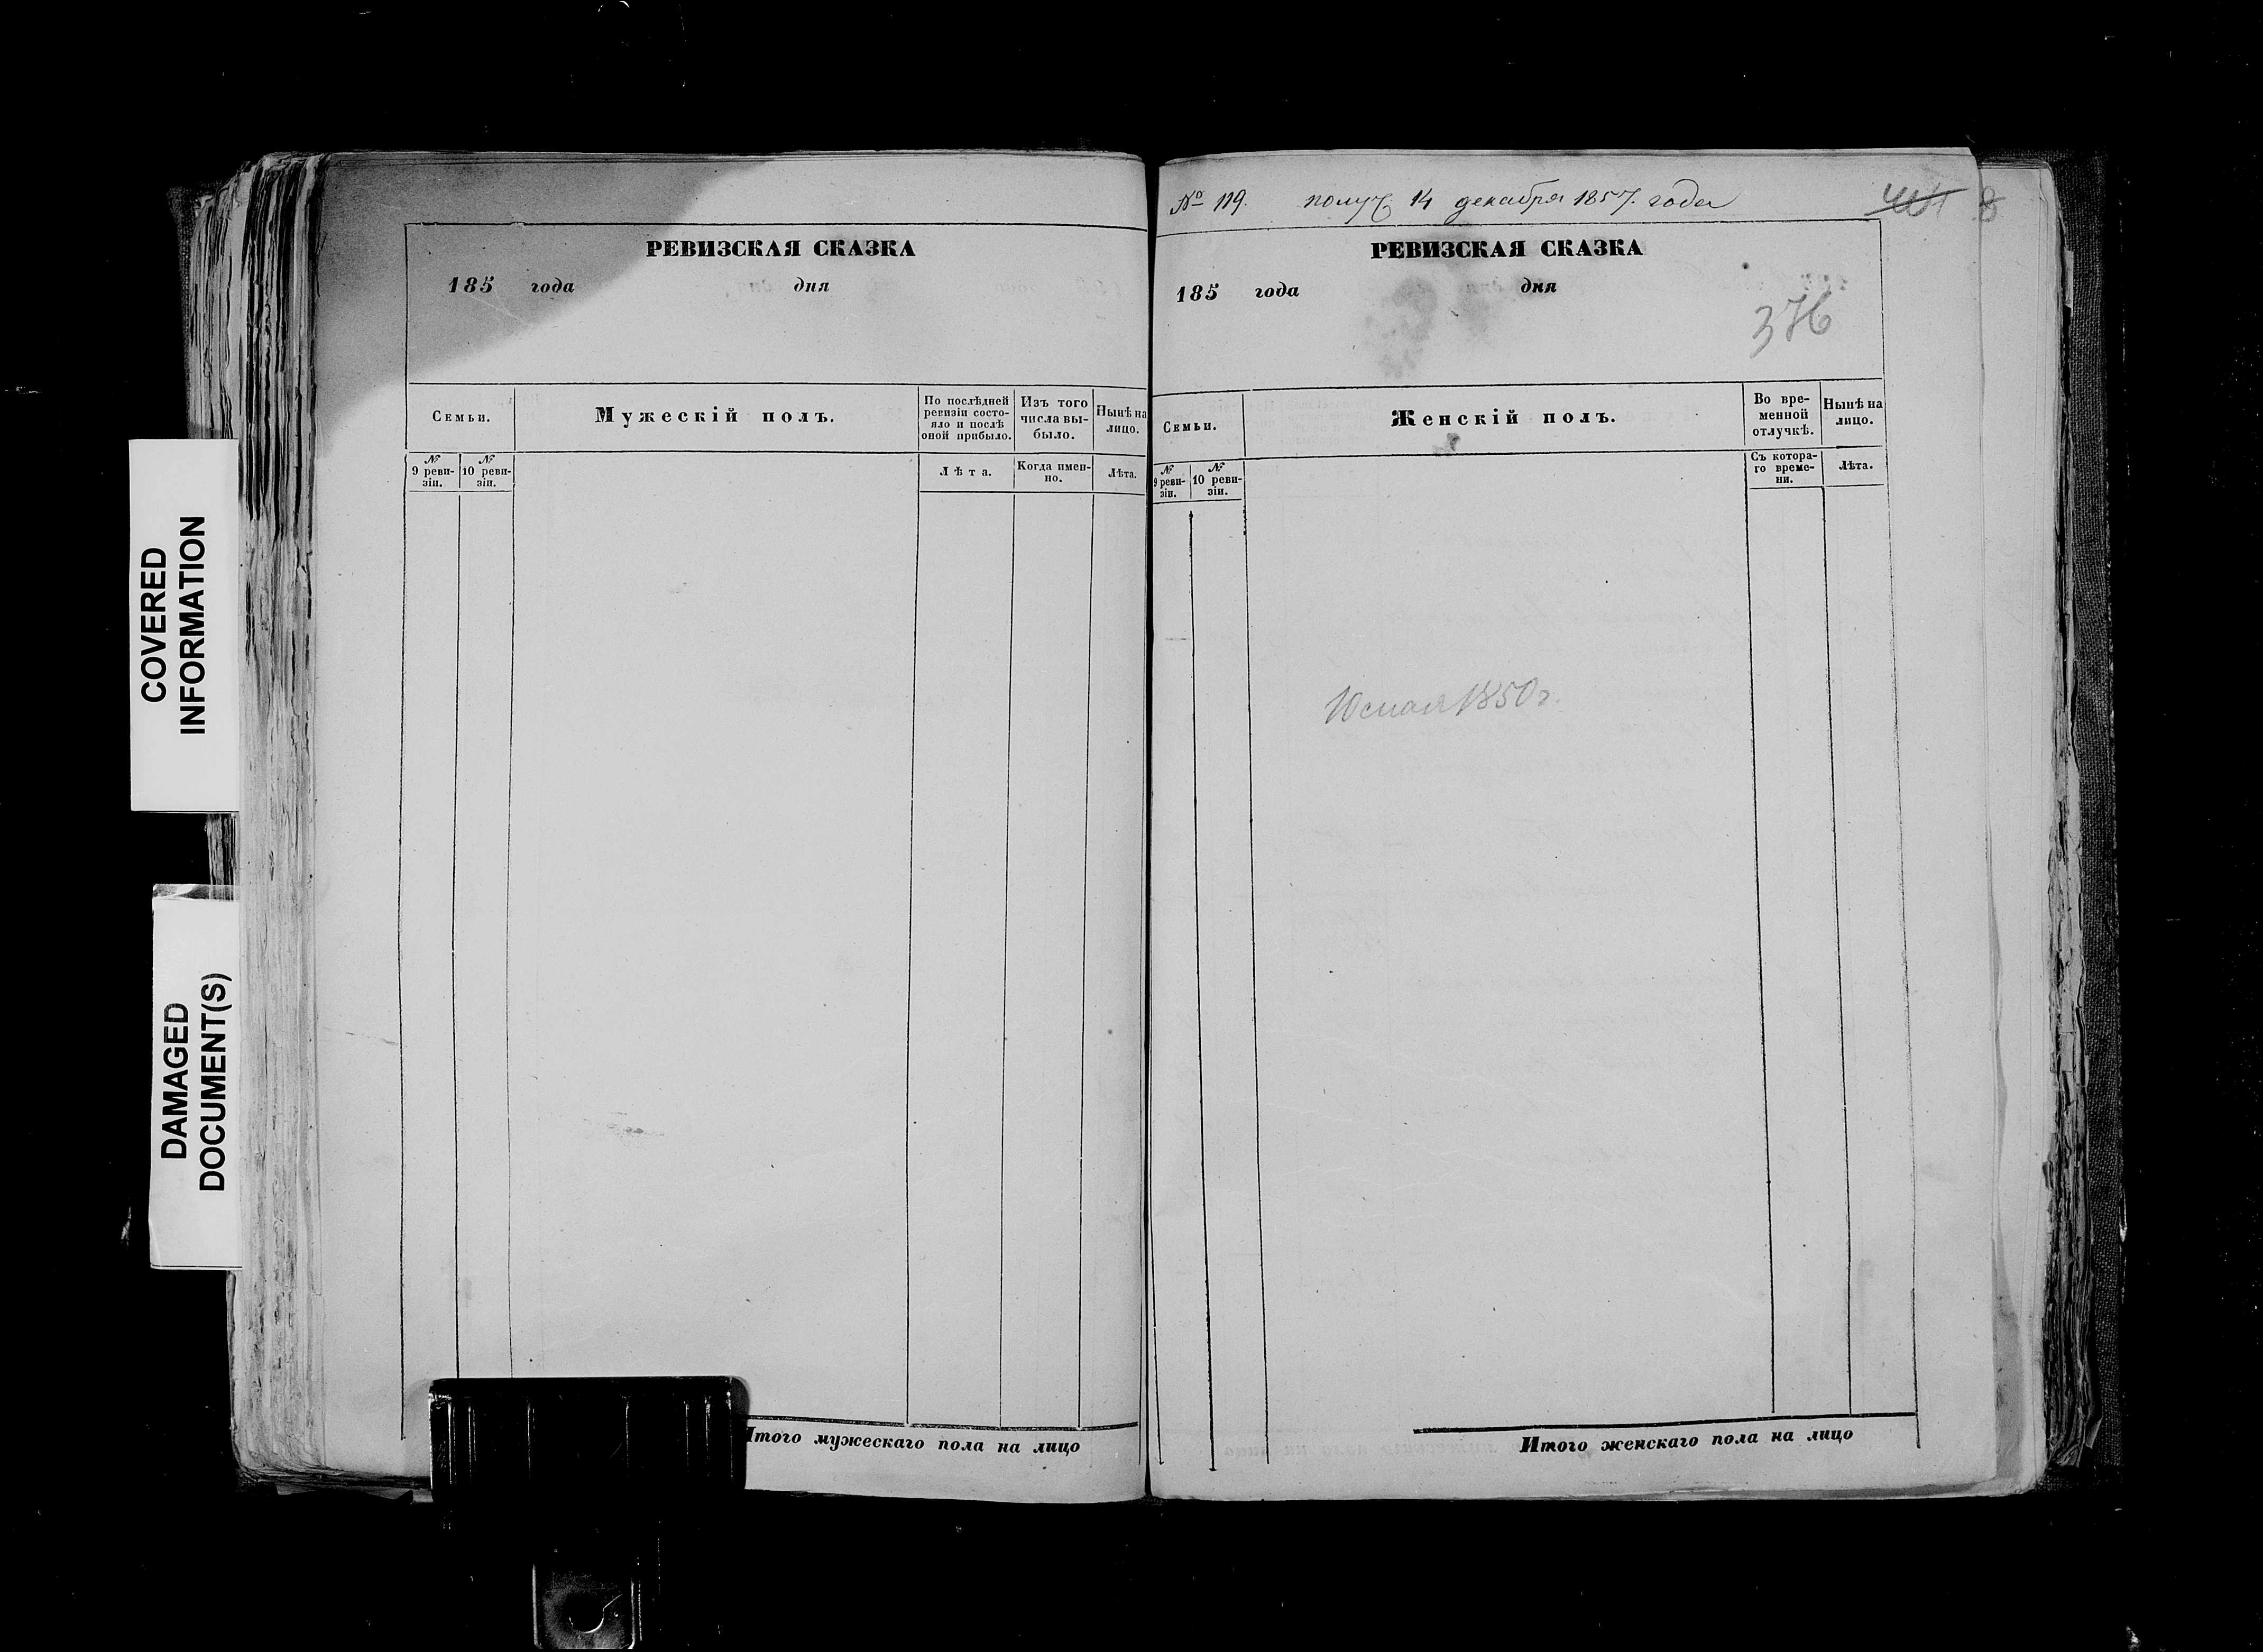 COVERED
INFORMATION
DAMAGED
DOCUMENT(S)
РЕВИЗСКАЯ СКАЗКА
185 года дня
Семьи.
Мужескій полъ.
По послѣдней
ревизіи состо-
яло и послѣ
оной прибыло.
Изъ того
числа вы-
было.
Нынѣ на
лицо.
№
9 реви-
зіи.
№
10 реви-
зіи.
Лѣта.
Когда имен-
но.
Лѣта.
Итого мужескаго пола на лицо
№ 119. получ. 14 декабря 1857. года
8
РЕВИЗСКАЯ СКАЗКА
185 года дня
376
Семьи.
Женскій полъ.
Во вре-
менной
отлучкѣ.
Нынѣ на
лицо.
№
9 реви-
зіи.
№
10 реви-
зіи.
Съ котора-
го време-
ни.
Лѣта.
1850 г.
Итого женскаго пола на лицо